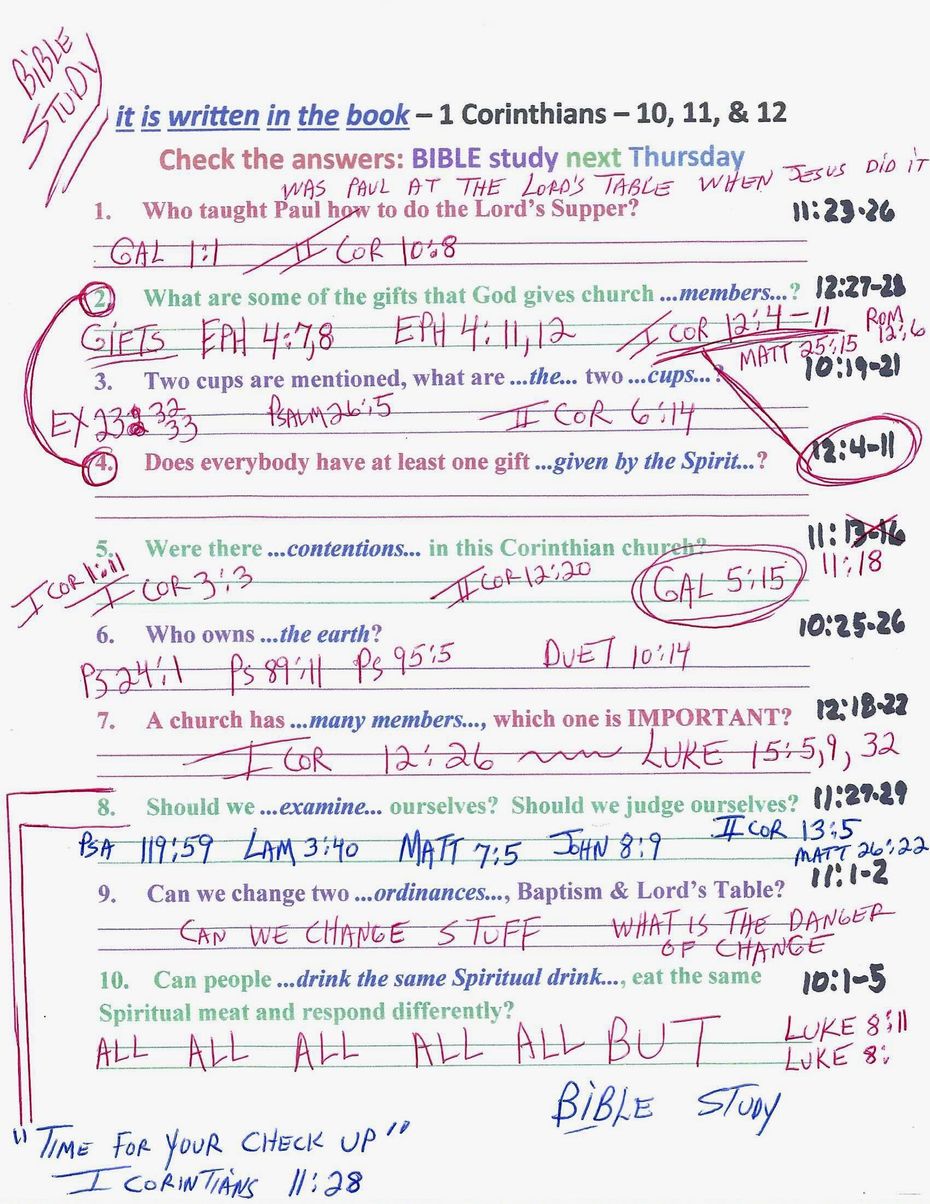 BIBLE
STUDY
it is written in the book – 1 Corinthians – 10, 11, & 12
Check the answers: BIBLE study next Thursday
WAS PAUL AT THE LORD'S TABLE WHEN JESUS DID IT
1. Who taught Paul how to do the Lord's Supper? 11:23-26
GAL 1:1 II COR 10:8
2. What are some of the gifts that God gives church ...members...? 12:27-28
GIFTS EPH 4:7,8 EPH 4:11,12 I COR 12:4-11 ROM 12:6
MATT 25:15
3. Two cups are mentioned, what are ...the... two ...cups...? 10:19-21
EX 23: 32 33 PSALM 26:5 II COR 6:14
4. Does everybody have at least one gift ...given by the Spirit...? 12:4-11
5. Were there ...contentions... in this Corinthian church? 11:13-16
11:18
I COR 1:11 I COR 3:3 II COR 12:20 GAL 5:15
6. Who owns ...the earth? 10:25-26
PS 24:1 PS 89:11 PS 95:5 DUET 10:14
7. A church has ...many members..., which one is IMPORTANT? 12:18-22
I COR 12:26 LUKE 15:5,9,32
8. Should we ...examine... ourselves? Should we judge ourselves? 11:27-29
PSA 119:59 LAM 3:40 MATT 7:5 JOHN 8:9 II COR 13:5
MATT 26:22
9. Can we change two ...ordinances..., Baptism & Lord's Table? 11:1-2
CAN WE CHANGE STUFF WHAT IS THE DANGER
OF CHANGE
10. Can people ...drink the same Spiritual drink..., eat the same 10:1-5
Spiritual meat and respond differently?
ALL ALL ALL ALL ALL BUT LUKE 8:11
LUKE 8:
BIBLE STUDY
"TIME FOR YOUR CHECK UP"
I CORINTIANS 11:28